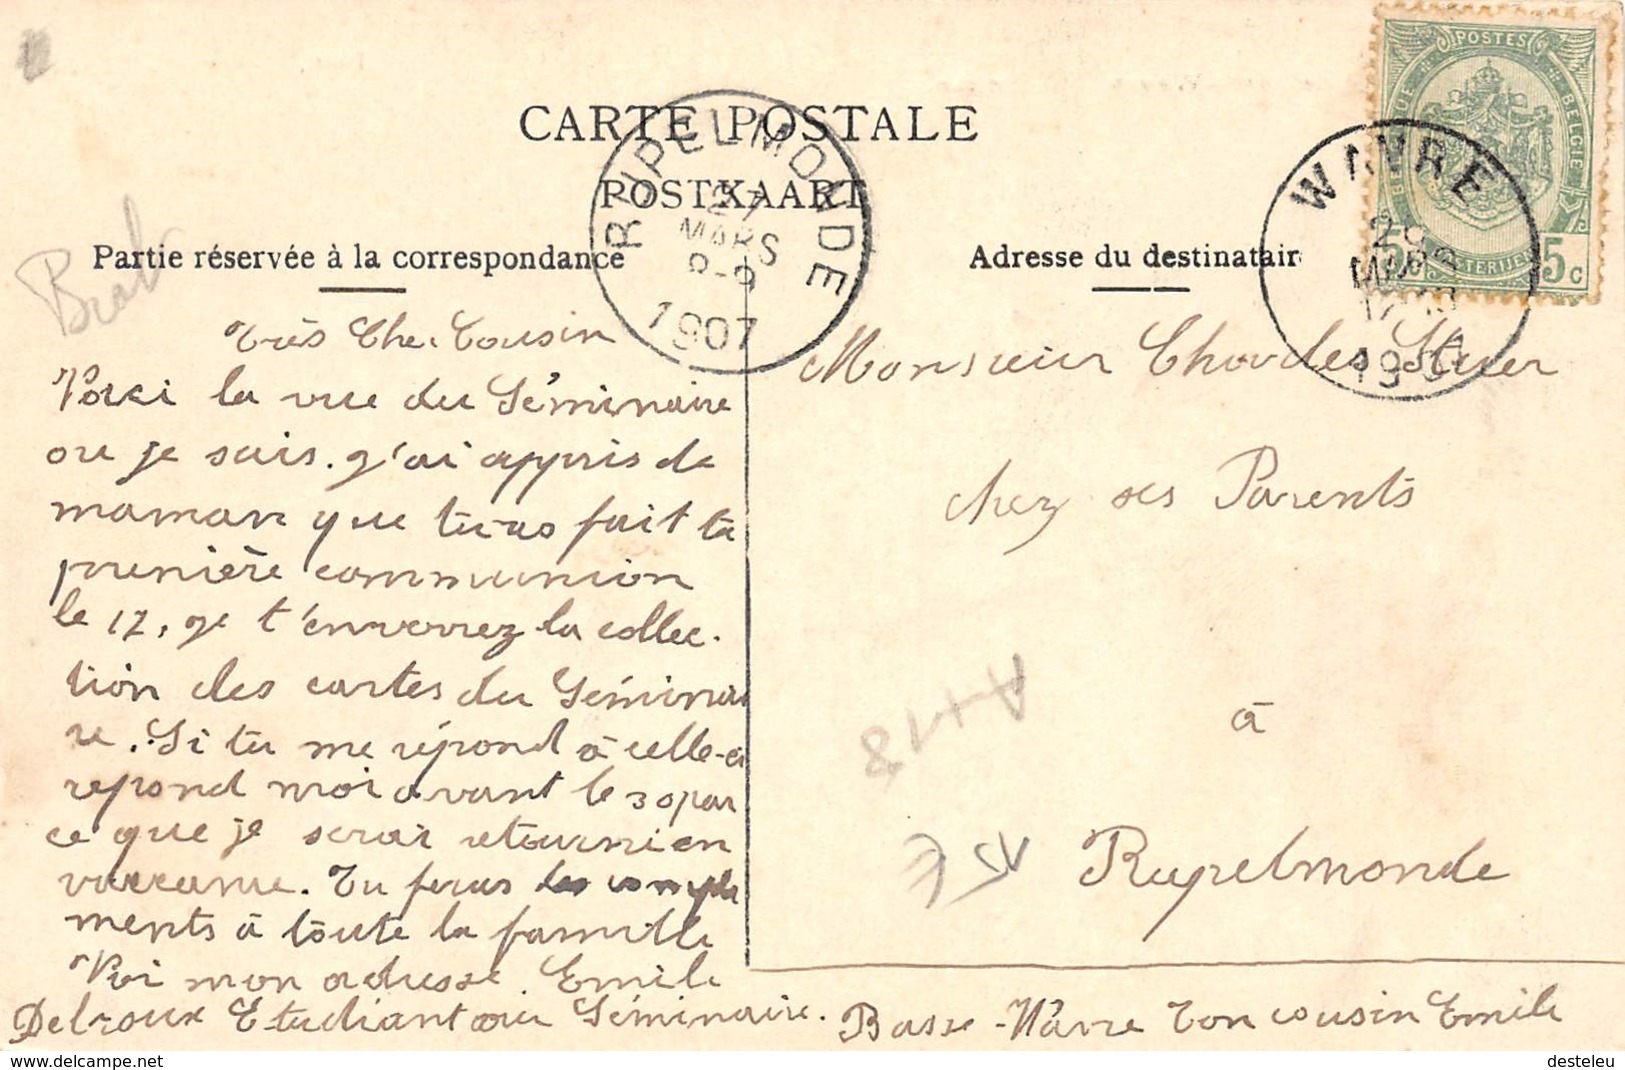 CARTE POSTALE
POSTKAART
Partie réservée à la correspondance
Adresse du destinatair
POSTES
BELGIQUE
BELGIE
POSTERIJEN
5 5c
RUPELMONDE
27
MARS
8-9
1907
WAVRE
MARS
1907
Brab
Très Cher Cousin
Voici la vue du Séminaire
ou je suis. j'ai appris de
maman que tu as fait ta
première communion
le 17, je t'enverrez la collec-
tion des cartes du Séminai
re. Si tu me répond à celle-ci
repond moi avant le 30 par
ce que je serai retourni en
vaccance. Tu feras les comple
ments à toute la famille
Voi mon adresse. Emile
Delroux Etudiant au Séminaire. Basse-Wavre Ton cousin Emile
Monsieur Charles
chez ses Parents
à
Rupelmonde
A+18
desteleu